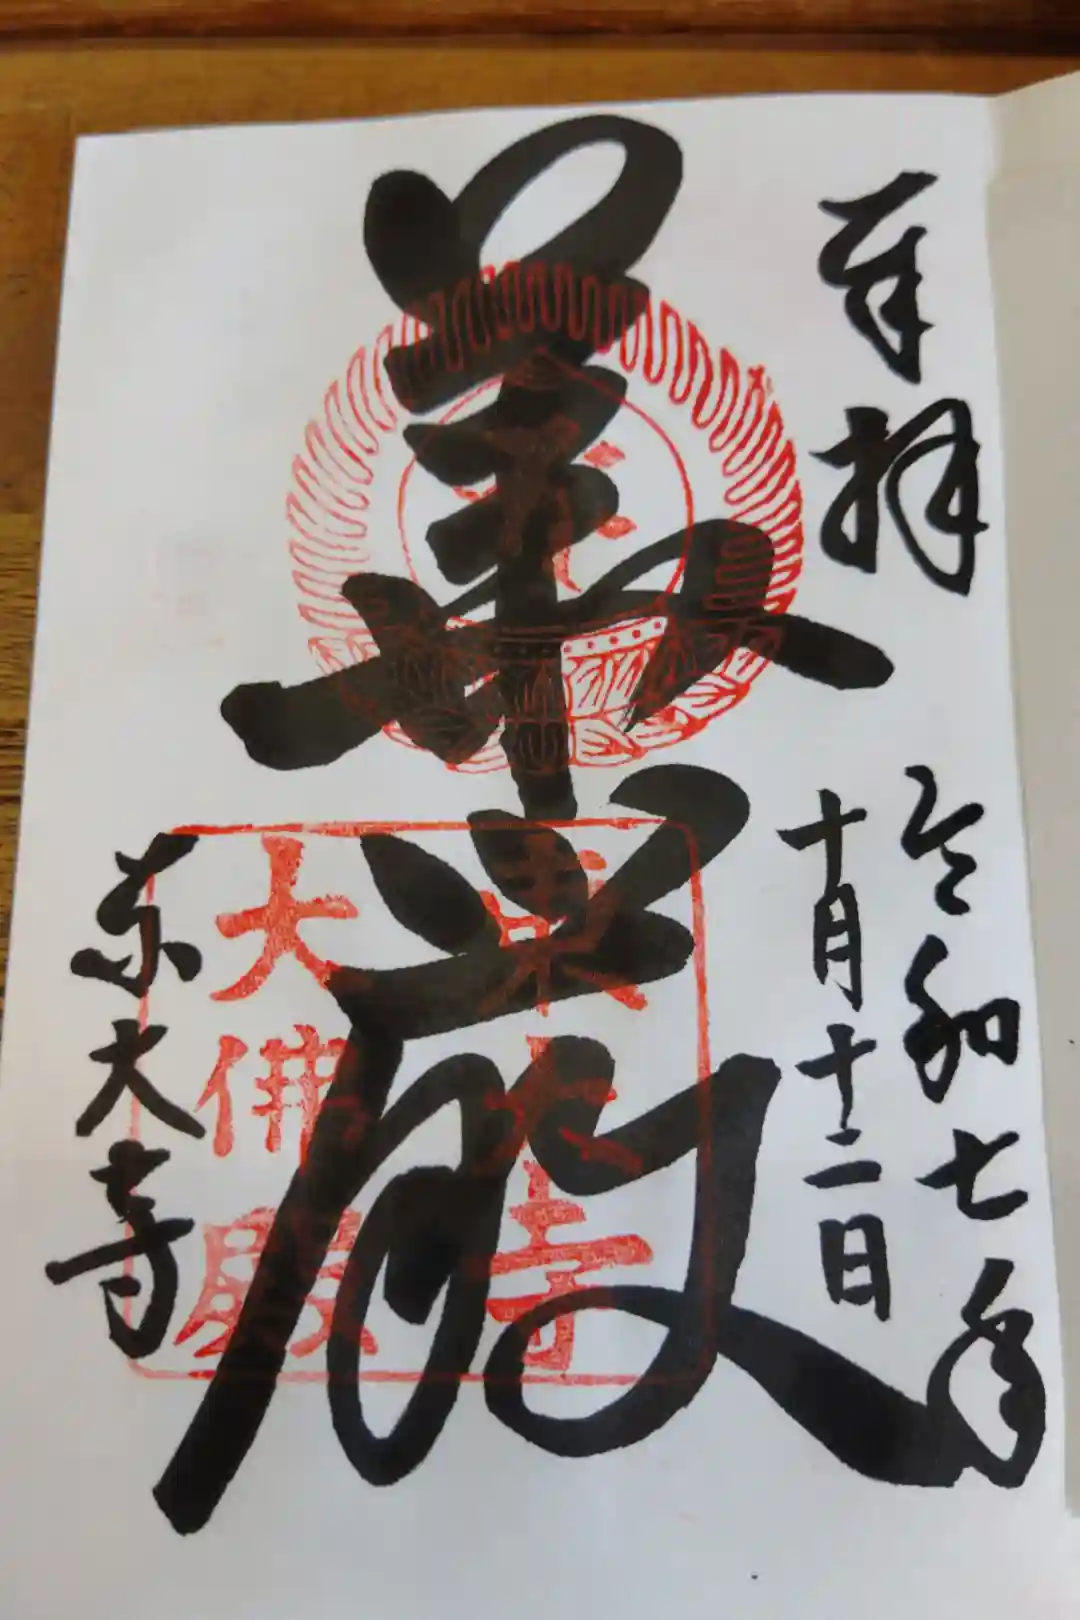 奉拝
令和七年
十月十二日
華嚴
東大寺
東大寺
大佛殿